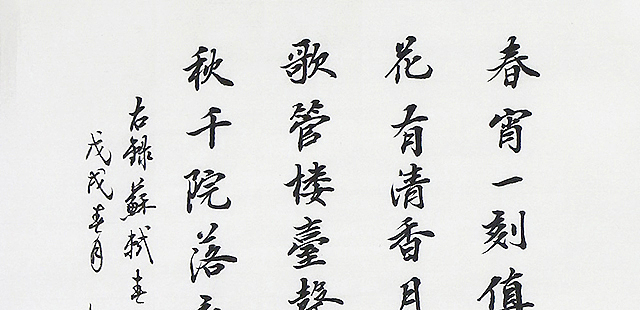 春宵一刻值
花有清香月
歌管楼臺聲
秋千院落
右錄蘇軾春
戊戌春月